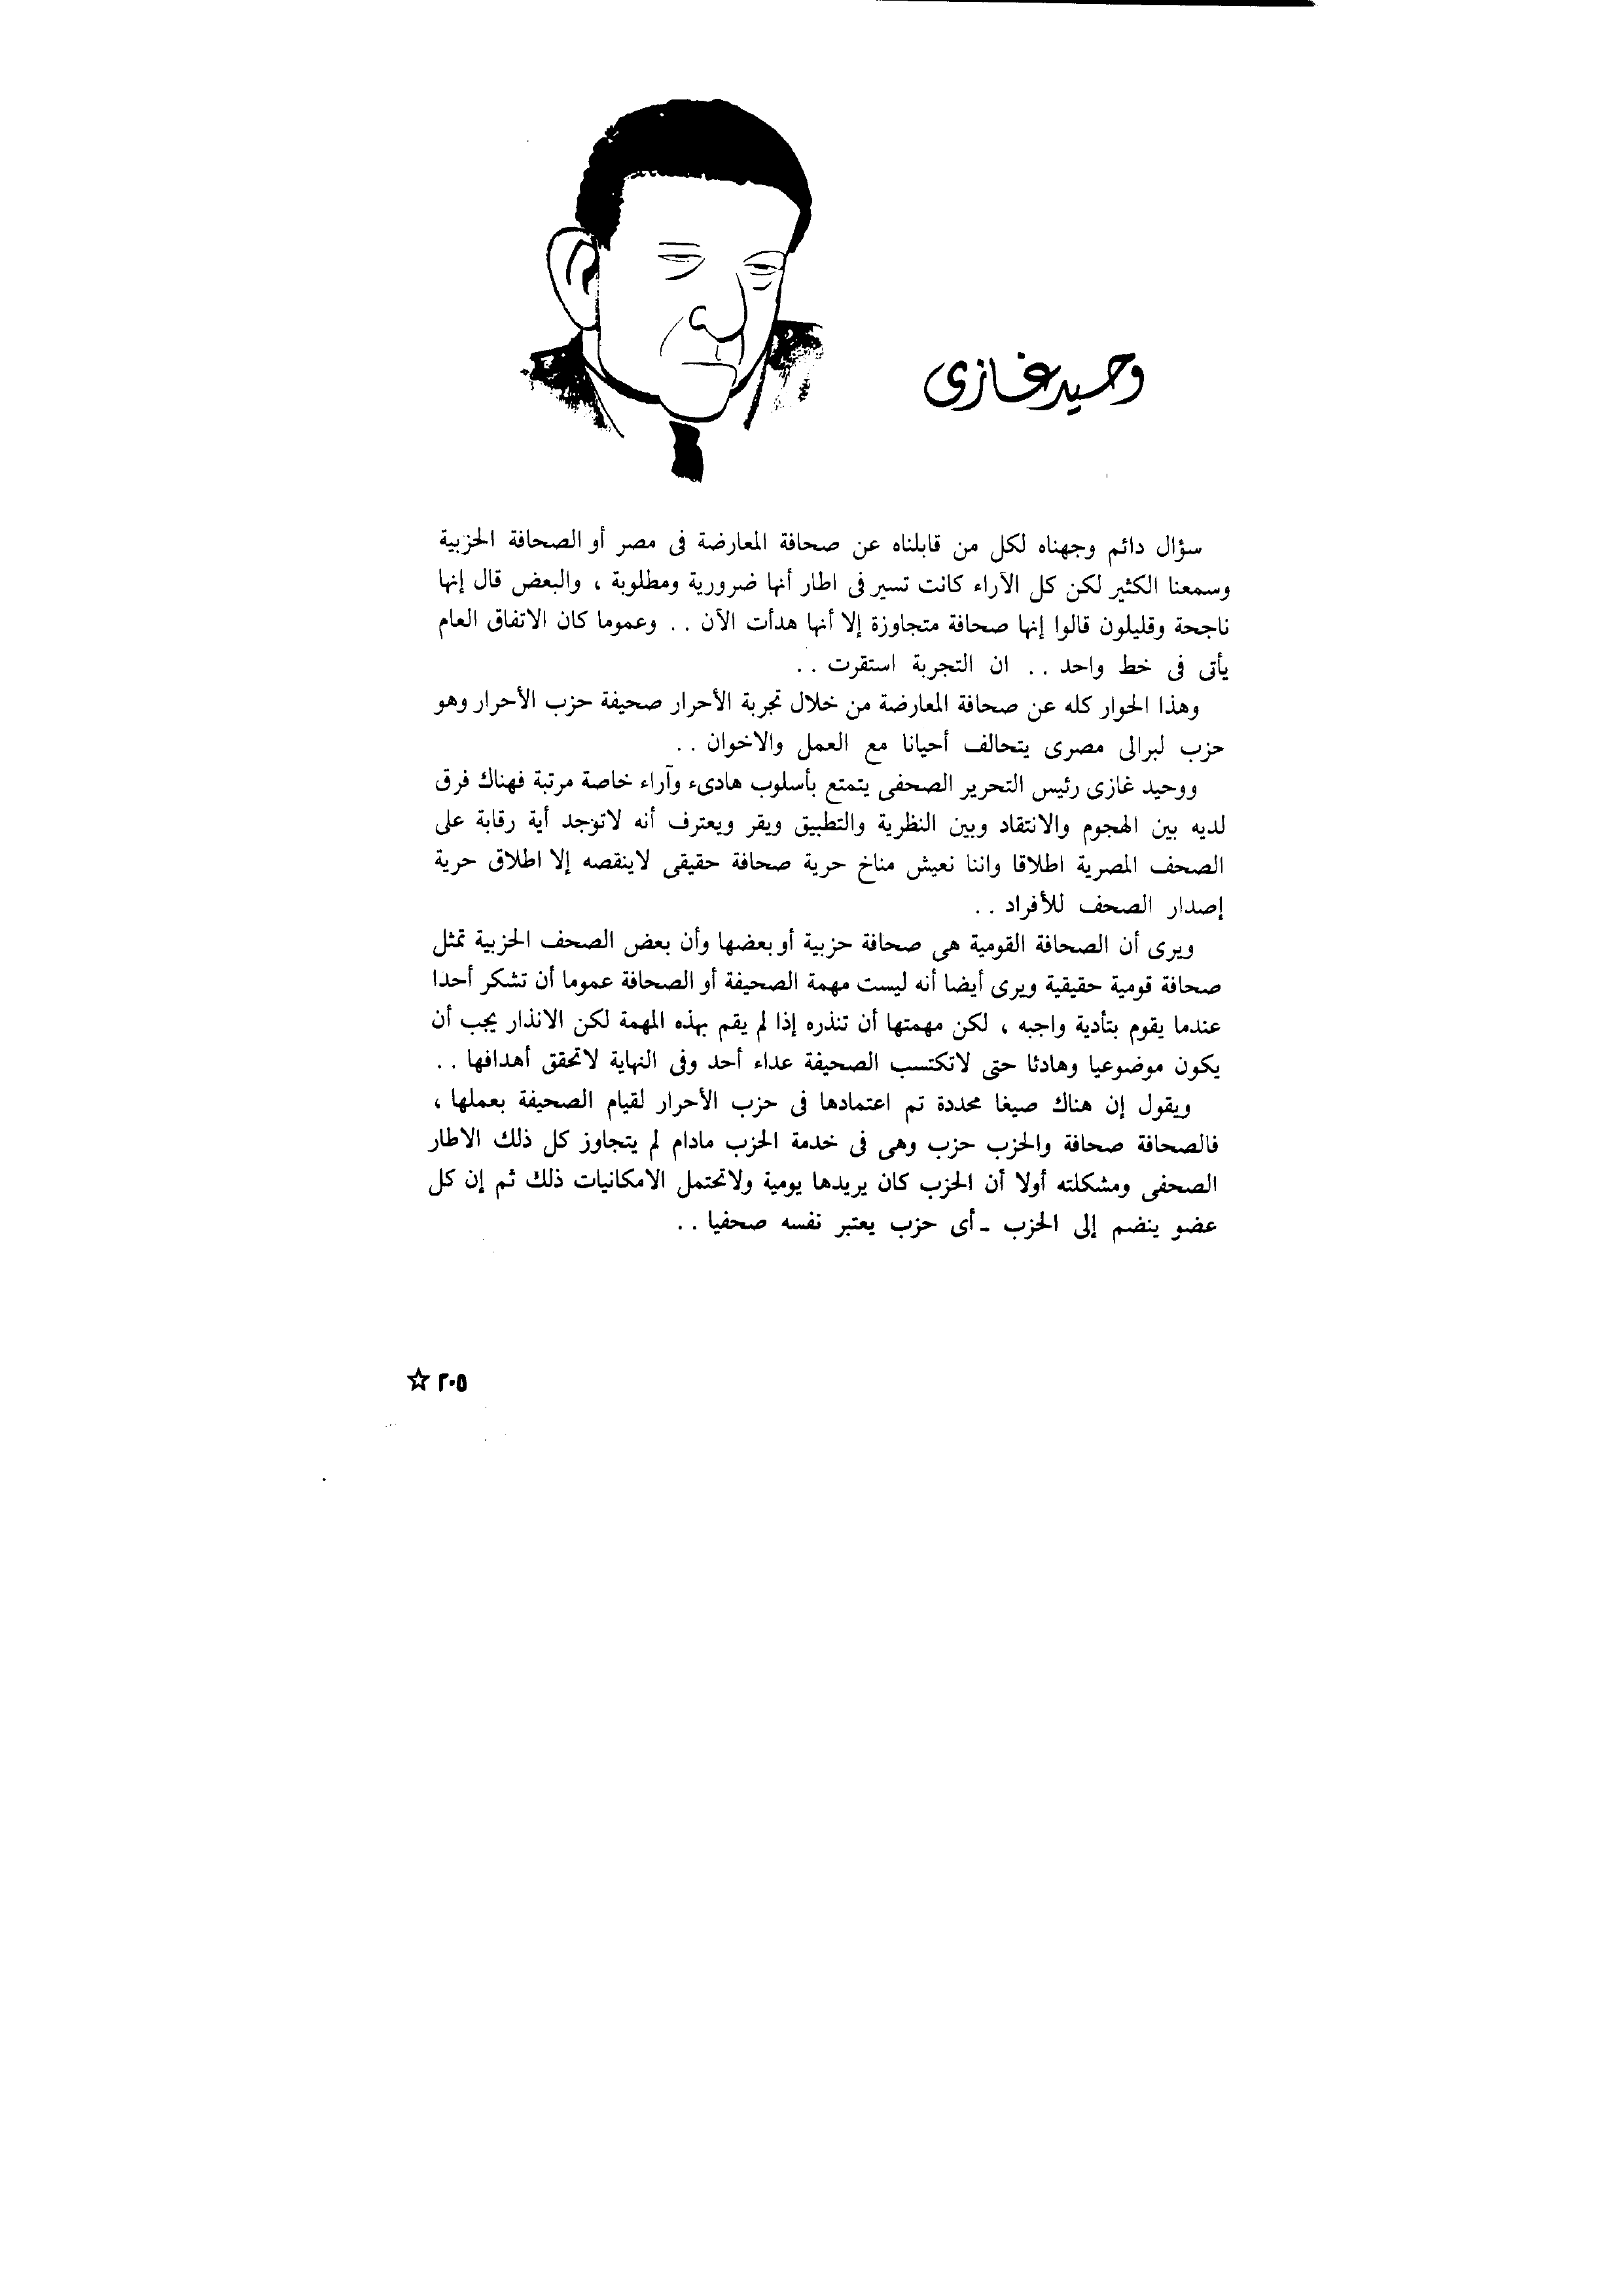 وحيد غازى
سؤال دائم وجهناه لكل من قابلناه عن صحافة المعارضة فى مصر أو الصحافة الحزبية
وسمعنا الكثير لكن كل الآراء كانت تسير فى اطار أنها ضرورية ومطلوبة ، والبعض قال إنها
ناجحة وقليلون قالوا إنها صحافة متجاوزة إلا أنها هدأت الآن . . وعموما كان الاتفاق العام
يأتى فى خط واحد . . ان التجربة استقرت . .
وهذا الحوار كله عن صحافة المعارضة من خلال تجربة الأحرار صحيفة حزب الأحرار وهو
حزب لبرالى مصرى يتحالف أحيانا مع العمل والاخوان . .
ووحيد غازى رئيس التحرير الصحفى يتمتع بأسلوب هادىء وآراء خاصة مرتبة فهناك فرق
لديه بين الهجوم والانتقاد وبين النظرية والتطبيق ويقر ويعترف أنه لاتوجد أية رقابة على
الصحف المصرية اطلاقا واننا نعيش مناخ حرية صحافة حقيقى لاينقصه إلا اطلاق حرية
إصدار الصحف للأفراد . .
ويرى أن الصحافة القومية هى صحافة حزبية أو بعضها وأن بعض الصحف الحزبية تمثل
صحافة قومية حقيقية ويرى أيضا أنه ليست مهمة الصحيفة أو الصحافة عموما أن تشكر أحدا
عندما يقوم بتأدية واجبه ، لكن مهمتها أن تنذره إذا لم يقم بهذه المهمة لكن الانذار يجب أن
يكون موضوعيا وهادئا حتى لاتكتسب الصحيفة عداء أحد وفى النهاية لاتحقق أهدافها . .
ويقول إن هناك صيغا محددة تم اعتمادها فى حزب الأحرار لقيام الصحيفة بعملها ،
فالصحافة صحافة والحزب حزب وهى فى خدمة الحزب مادام لم يتجاوز كل ذلك الاطار
الصحفى ومشكلته أولا أن الحزب كان يريدها يومية ولاتحتمل الامكانيات ذلك ثم إن كل
عضو ينضم إلى الحزب ـ أى حزب يعتبر نفسه صحفيا . .
٢٠٥ ☆